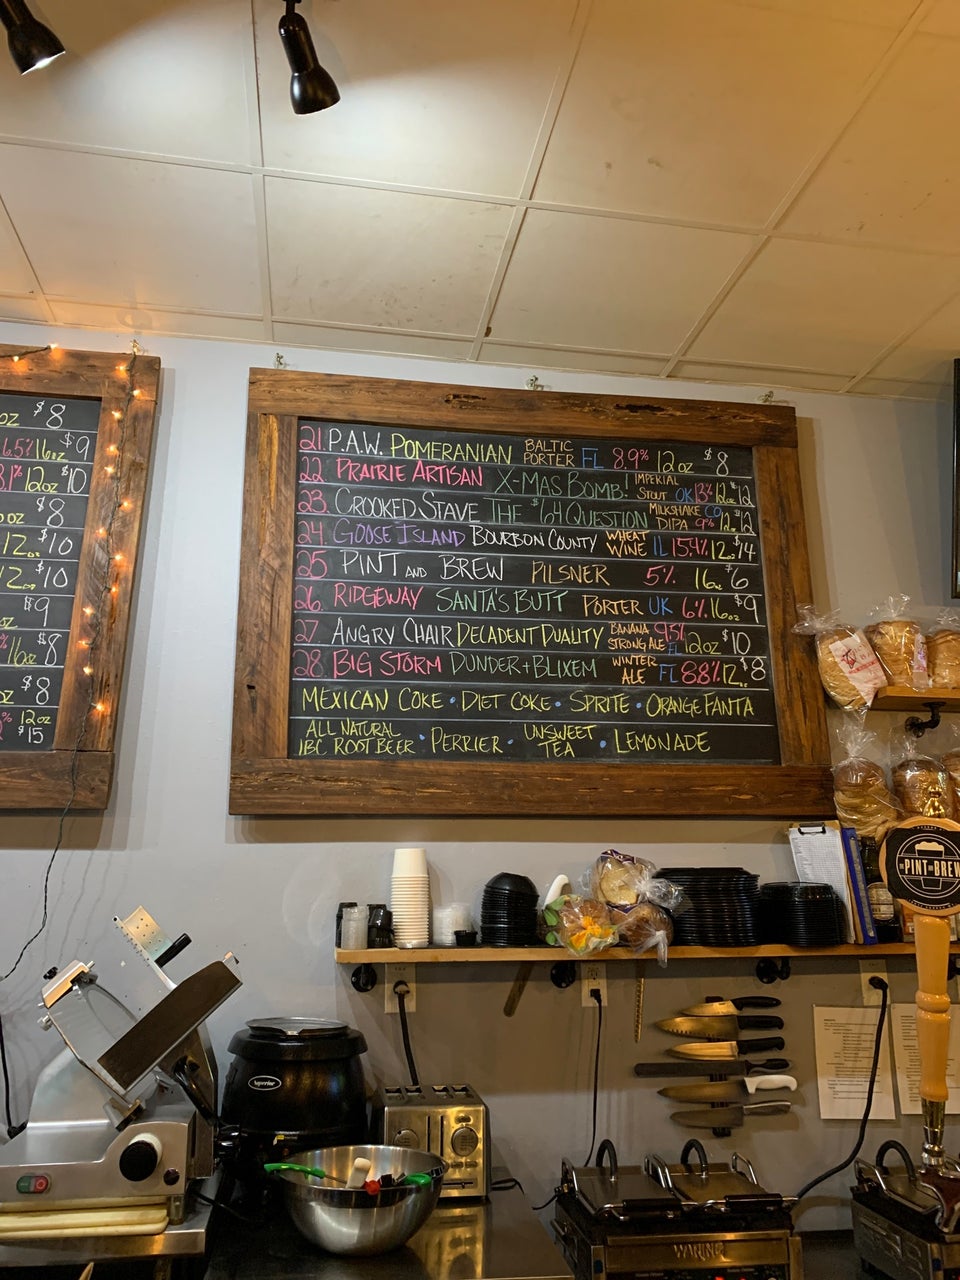 oz $8
6.5% 16oz $9
8.1% 12oz $10
oz $8
12oz $10
12oz $10
oz $9
% 16oz $8
oz $8
% 12oz $15
21. P.A.W. POMERANIAN BALTIC PORTER FL 8.9% 12oz $8
22 PRAIRIE ARTISAN X-MAS BOMB! IMPERIAL STOUT OK 13% 12oz $12
23. CROOKED STAVE THE $64 QUESTION MILKSHAKE DIPA CO 9% 12oz $12
24. GOOSE ISLAND BOURBON COUNTY WHEAT WINE IL 15.4% 12oz $14
25 PINT AND BREW PILSNER 5% 16oz $6
26. RIDGEWAY SANTA'S BUTT PORTER UK 6% 16oz $9
27 ANGRY CHAIR DECADENT DUALITY BANANA STRONG ALE 9.5% FL 12oz $10
28. BIG STORM DUNDER + BLIXEM WINTER ALE FL 8.8% 12oz $8
MEXICAN COKE • DIET COKE • SPRITE • ORANGE FANTA
ALL NATURAL IBC ROOT BEER • PERRIER • UNSWEET TEA • LEMONADE
PINT BREW
Superior
WARING